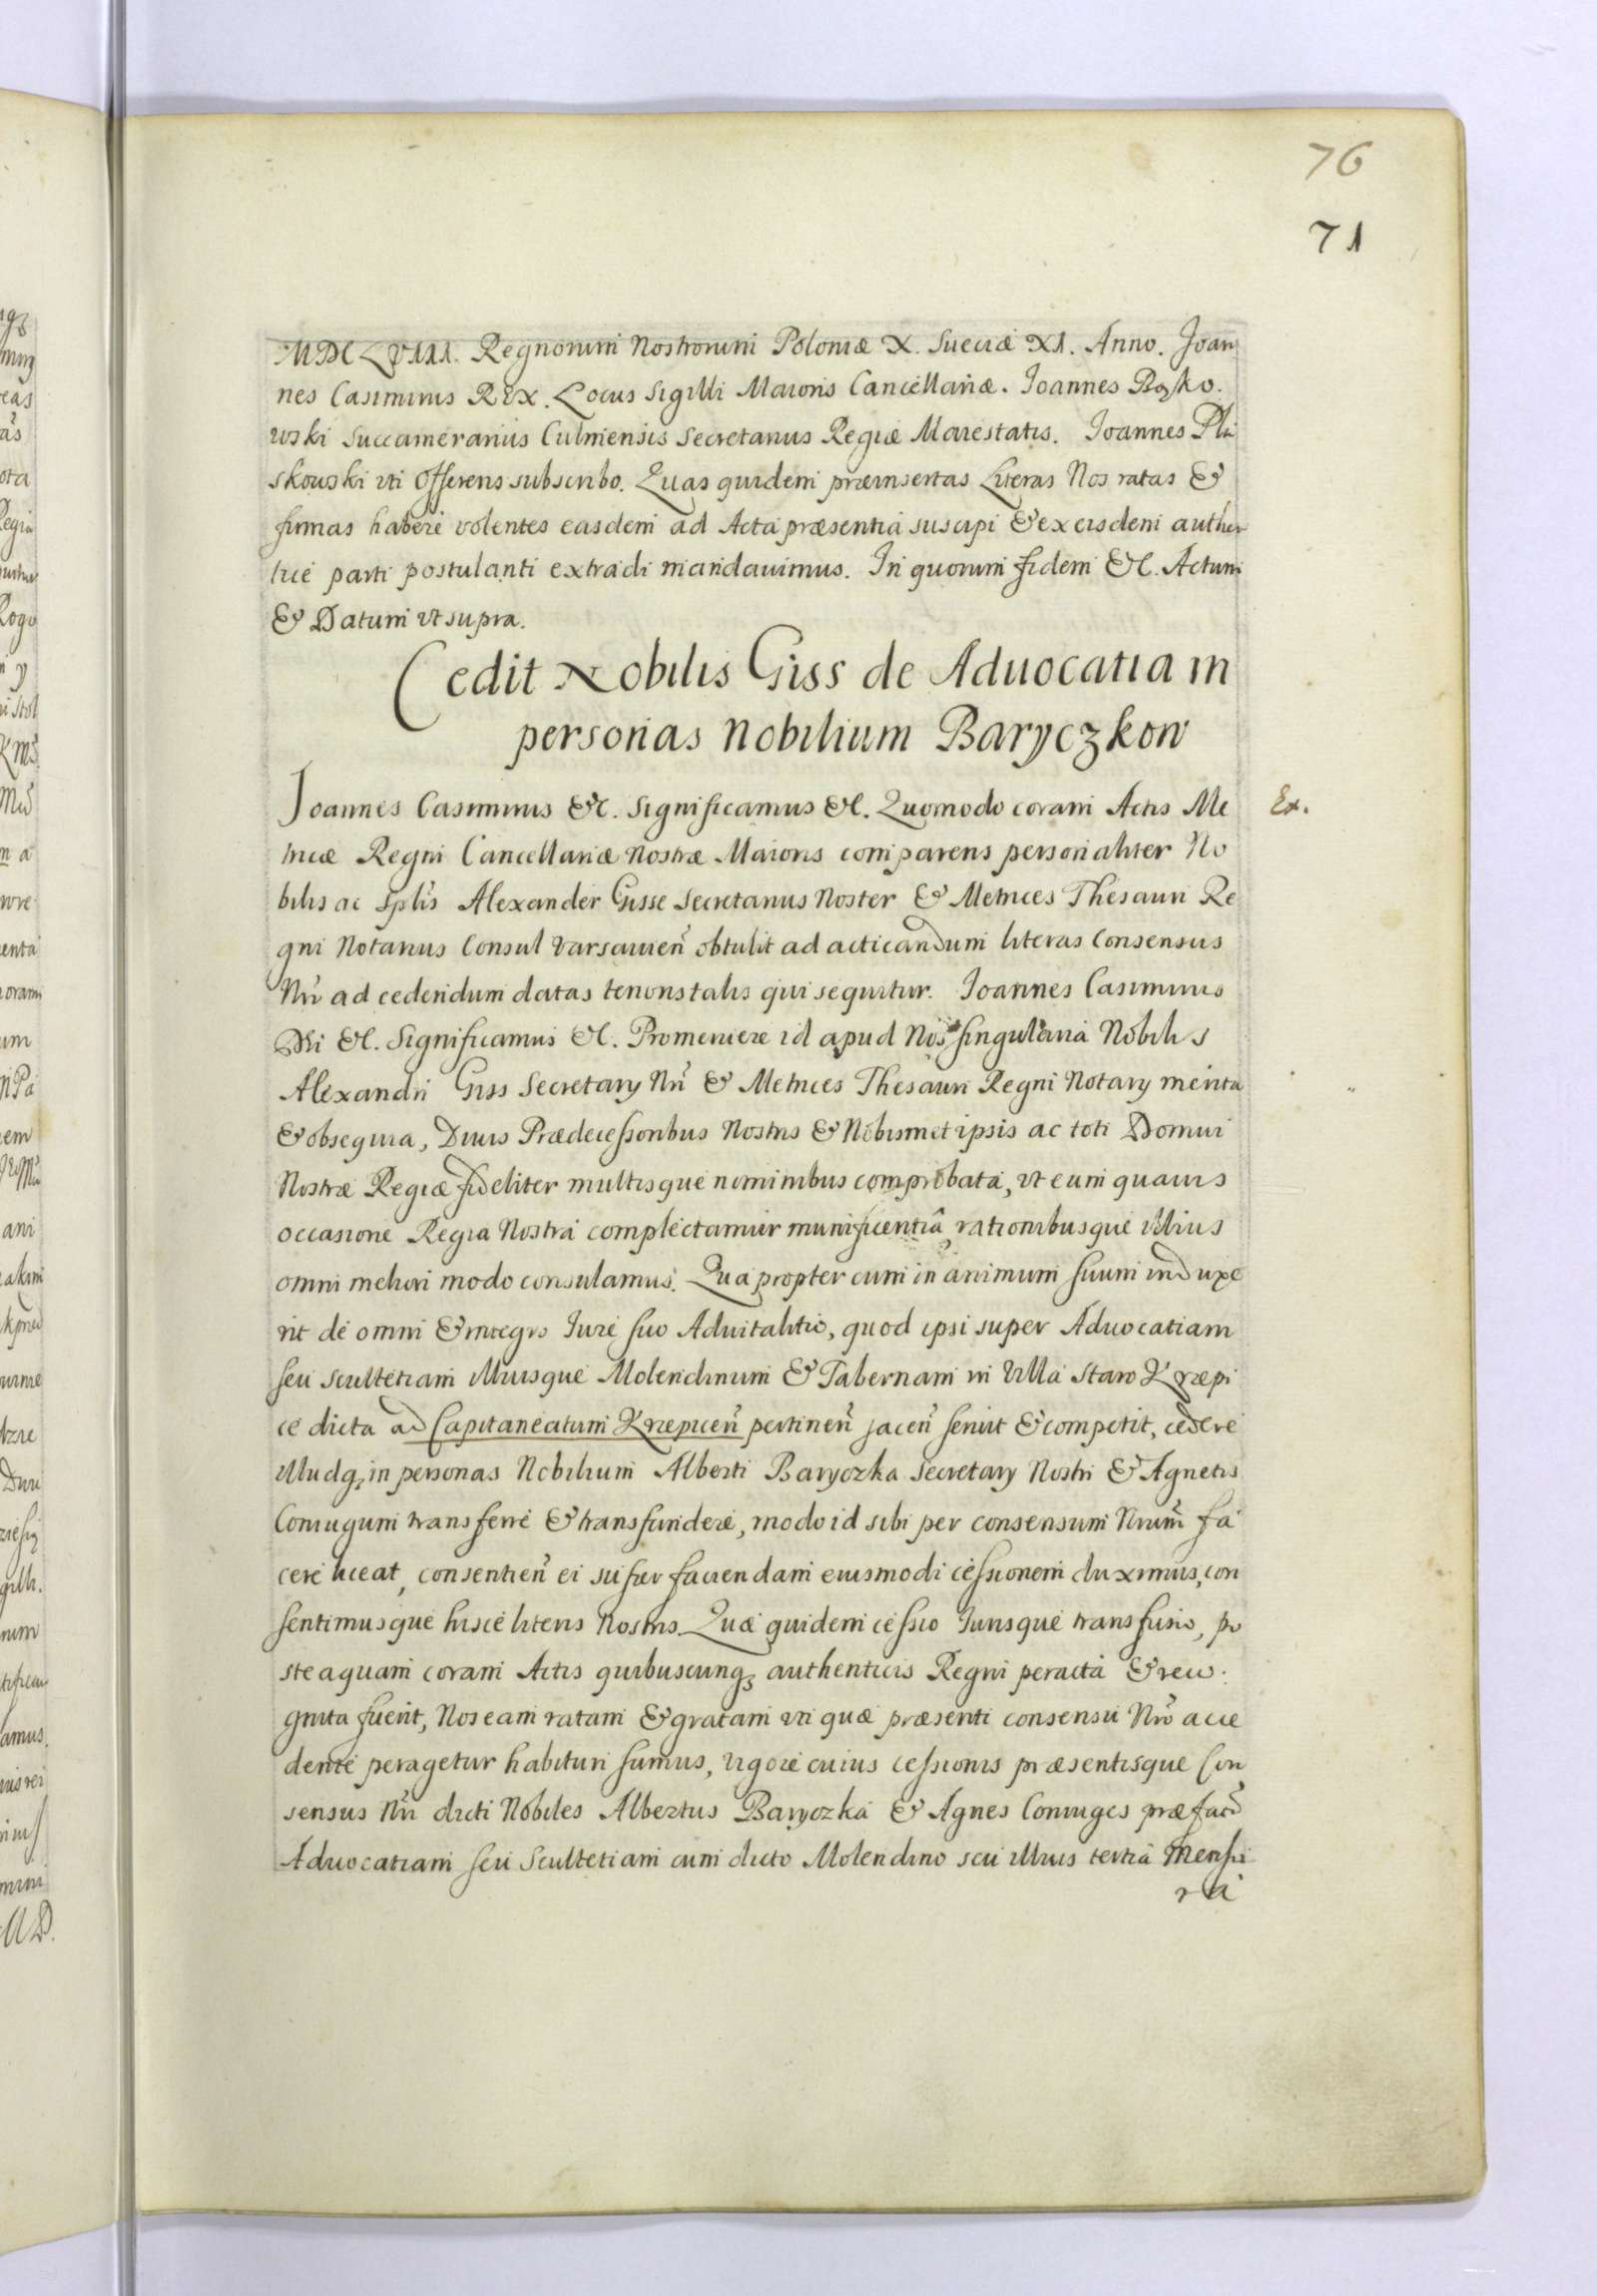 76
71
MDCLVIII. Regnorum Nostrorum Poloniæ X. Sueciæ XI. Anno. Joan
nes Casimirus REX. Locus Sigilli Maioris Cancellariæ. Joannes Bąko
wski Succamerarius Culmensis Secretarius Regiæ Maiestatis. Joannes Plu
skowski uti Offerens subscribo. Quas quidem præinsertas Literas Nos ratas &
firmas habere volentes easdem ad Acta præsentia suscipi & ex eisdem authen
tice parti postulanti extradi mandauimus. In quorum fidem &c. Actum
& Datum vt supra.
Cedit Nobilis Giss de Aduocatia in
personas Nobilium Baryczkow
Joannes Casimirus &c. Significamus &c. Quomodo coram Actis Me
Ex.
tricæ Regni Cancellariæ Nostræ Maioris comparens personaliter No
bilis ac Splis Alexander Gisse Secretarius Noster & Metrices Thesauri Re
gni Notarius Consul Varsauien obtulit ad acticandum literas Consensus
Nri ad cedendum datas tenoris talis qui sequitur. Joannes Casimirus
Dei &c. Significamus &c. Promeruere id apud Nos singularia Nobilis
Alexandri Giss Secretary Nri & Metrices Thesauri Regni Notary merita
& obsequia, Diuis Prædecessoribus Nostris & Nobismet ipsis ac toti Domui
Nostræ Regiæ fideliter multisque nominibus comprobata, vt eum quauis
occasione Regia Nostra complectamur munificentiâ, rationibusque illius
omni meliori modo consulamus. Qua propter cum in animum suum induxe
rit de omni & integro Jure suo Aduitalitio, quod ipsi super Aduocatiam
seu Scultetiam illiusque Molendinum & Tabernam in Villa Staro Krzepi
ce dicta ad Capitaneatum Krzepicen pertinen jacen seruit & competit, cedere
illudq; in personas Nobilium Alberti Baryczka Secretary Nostri & Agnetis
Coniugum transferre & transfundere, modo id sibi per consensum Nrum fa
cere liceat, consentien ei super faciendam eiusmodi cessionem duximus, con
sentimusque hisce literis Nostris. Quæ quidem cessio Jurisque transfusio, po
steaquam coram Actis quibuscunq; authenticis Regni peracta & reco
gnita fuerit, Nos eam ratam & gratam vti quæ præsenti consensu Nro acce
dente peragetur habituri sumus, vigore cuius cessionis præsentisque Con
sensus Nri dicti Nobiles Albertus Baryczka & Agnes Coniuges præfata
Aduocatiam seu Scultetiam cum dicto Molendino seu illius tertia Mensu
ra